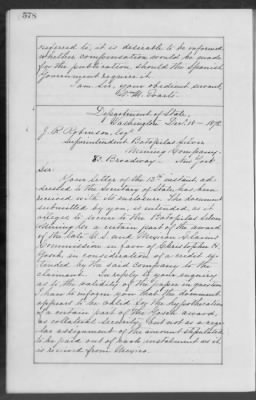 578
referred to, it is desirable to be informed
whether compensation would be made
for the publication, should the Spanish
Government require it.
I am Sir, your obedient servant,
Wm. M. Evarts.
Department of State,
Washington Dec. 18 - 1878.
J. R. Robinson, Esqr
Superintendent Batopilas Silver
Mining Company.
Broadway - New York
Sir:
Your letter of the 13th instant, ad-
dressed to the Secretary of State, has been
received with its enclosure. The document
submitted by you, is intended, as it
alleges to secure to the Batopilas Silver
Mining Co. a certain part of the award
of the late U.S. and Mexican Claims
Commission in favor of Christopher H.
in consideration of a credit ex-
tended by the said Company to the
claimant. In reply to your enquiry
as to the validity of the paper in question
I have to inform you that the document
appears to be valid for the hypothecation
of a certain part of the award,
as collateral security, but not as a regu-
lar assignment of the amount stipulated
to be paid out of each instalment as it
is received from Mexico.